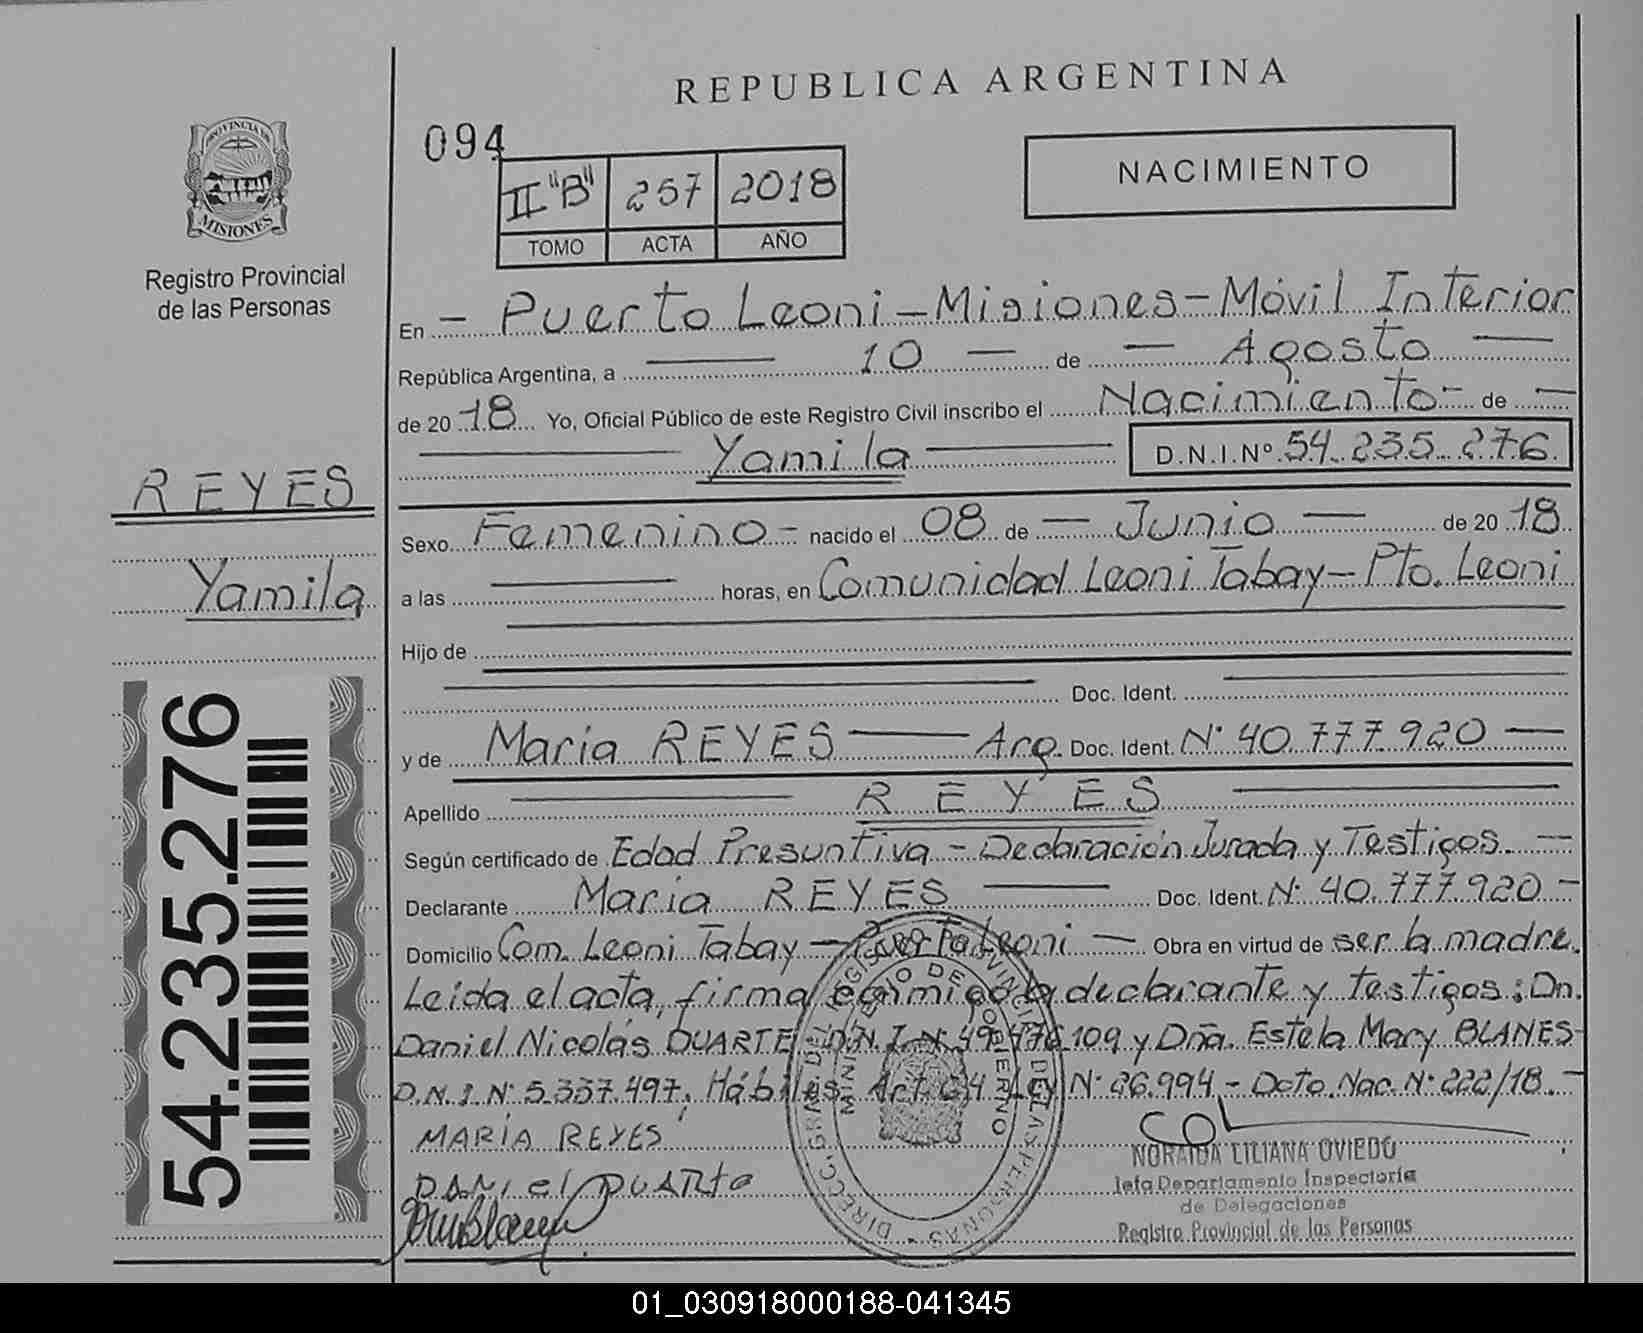 REPUBLICA ARGENTINA
094
II "B" 257 2018
TOMO ACTA AÑO
NACIMIENTO
PROVINCIA DE
MISIONES
Registro Provincial
de las Personas
REYES
Yamila
54.235.276
En - Puerto Leoni - Misiones - Móvil Interior
República Argentina, a 10 de Agosto
de 20 18 Yo, Oficial Público de este Registro Civil inscribo el Nacimiento de
Yamila D.N.I.Nº 54.235.276
Sexo Femenino nacido el 08 de Junio de 20 18
a las horas, en Comunidad Leoni Tabay - Pto. Leoni
Hijo de
Doc. Ident.
y de Maria REYES Arg. Doc. Ident. Nº 40.777.920
Apellido REYES
Según certificado de Edad Presuntiva - Declaración Jurada y Testigos.
Declarante Maria REYES Doc. Ident. Nº 40.777.920
Domicilio Com. Leoni Tabay - Puerto Leoni Obra en virtud de ser la madre.
Leida el acta, firma conmigo la declarante y testigos: Dn.
Daniel Nicolás DUARTE D.N.I. Nº 109 y Dña. Estela Mary BLANES
D.N.I. Nº 5.337.497, Hábiles. Art. 64 Ley Nº 26.994 - Dcto. Nac. Nº 222/18.
MARÍA REYES
DANiel DUARTe
NORAIDA LILIANA OVIEDO
Jefa Departamento Inspectoría
de Delegaciones
Registro Provincial de las Personas
01_030918000188-041345